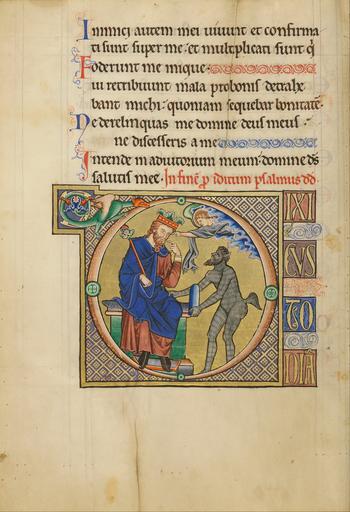 Inimici autem mei uiuunt et confirma
ti sunt super me: et multiplicati sunt q̄
oderunt me inique:
ui retribuunt mala pro bonis detrahe
bant michi: quoniam sequebar bonitatē
Ne derelinquas me domine deus meus:
ne discesseris a me
Intende in adiutorium meum: domine d̄s
salutis mee. In finē p iditum psalmus dd.
D
IXI
CUS
TO
DIĀ